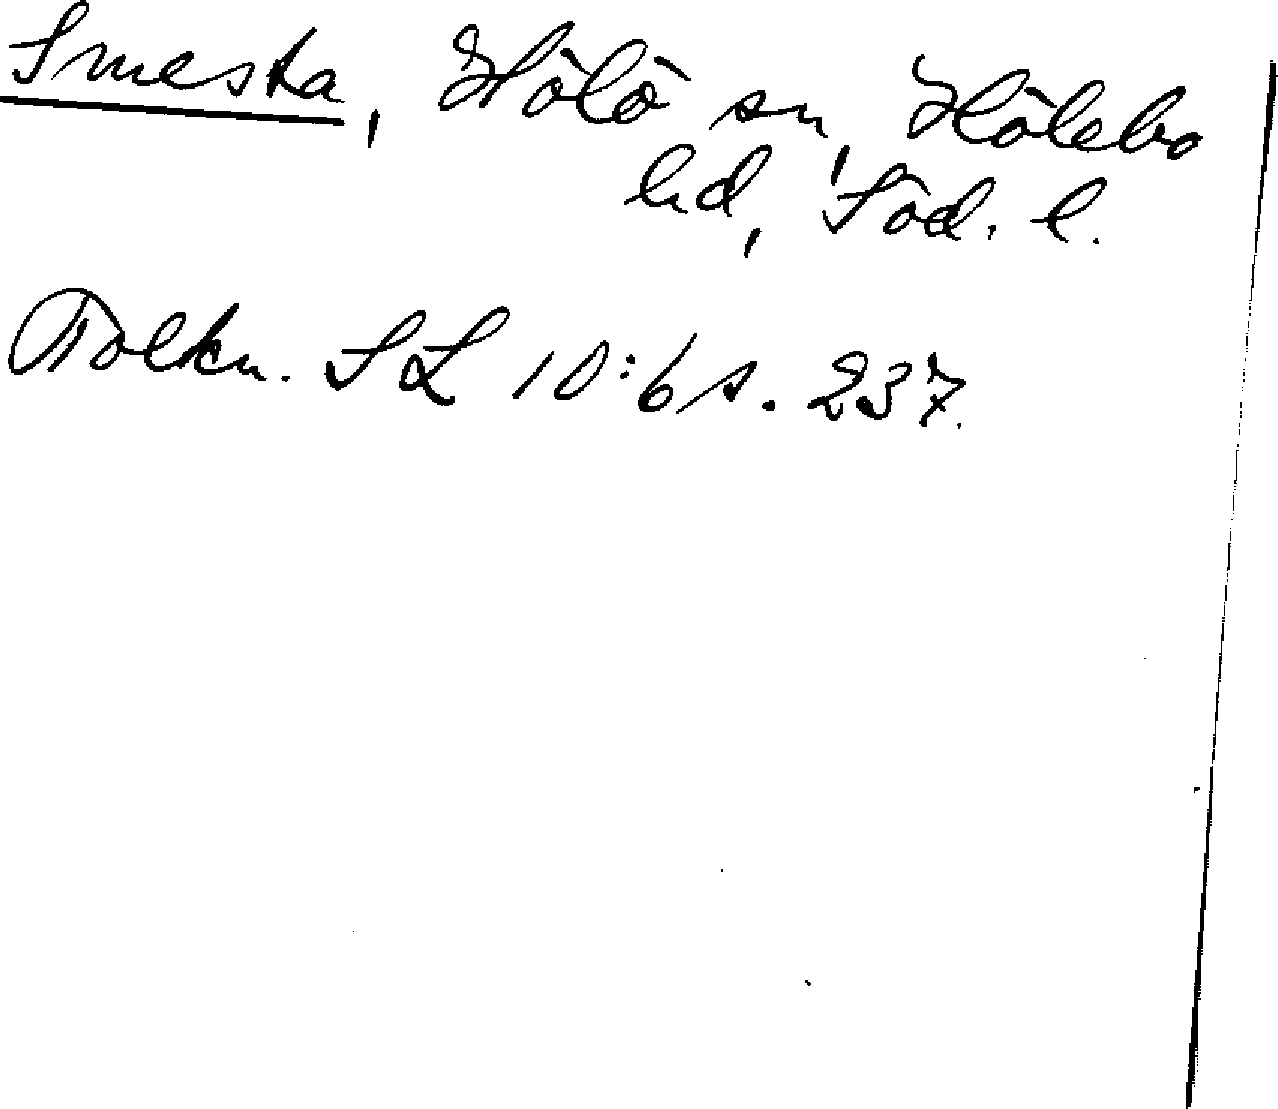 Smesta, Hölö sn, Hölebo
hd, Söd. l.
Tolkn. SL 10:6 s. 237.